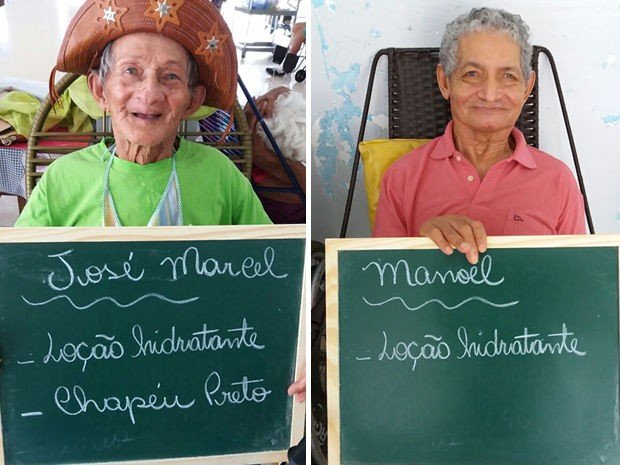 José Marcel
- Loção hidratante
- Chapéu Preto
Manoel
- Loção hidratante